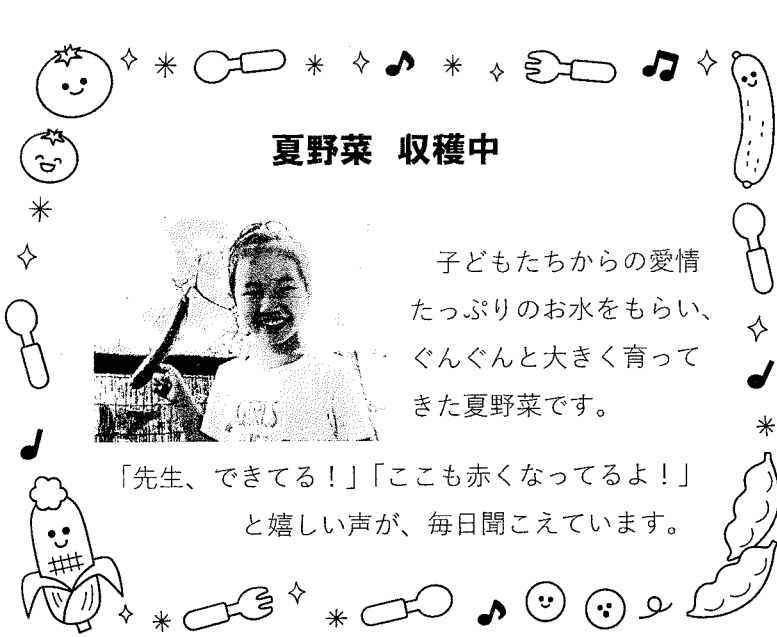 夏野菜 収穫中
子どもたちからの愛情
たっぷりのお水をもらい、
ぐんぐんと大きく育って
きた夏野菜です。
「先生、できてる！」「ここも赤くなってるよ！」
と嬉しい声が、毎日聞こえています。